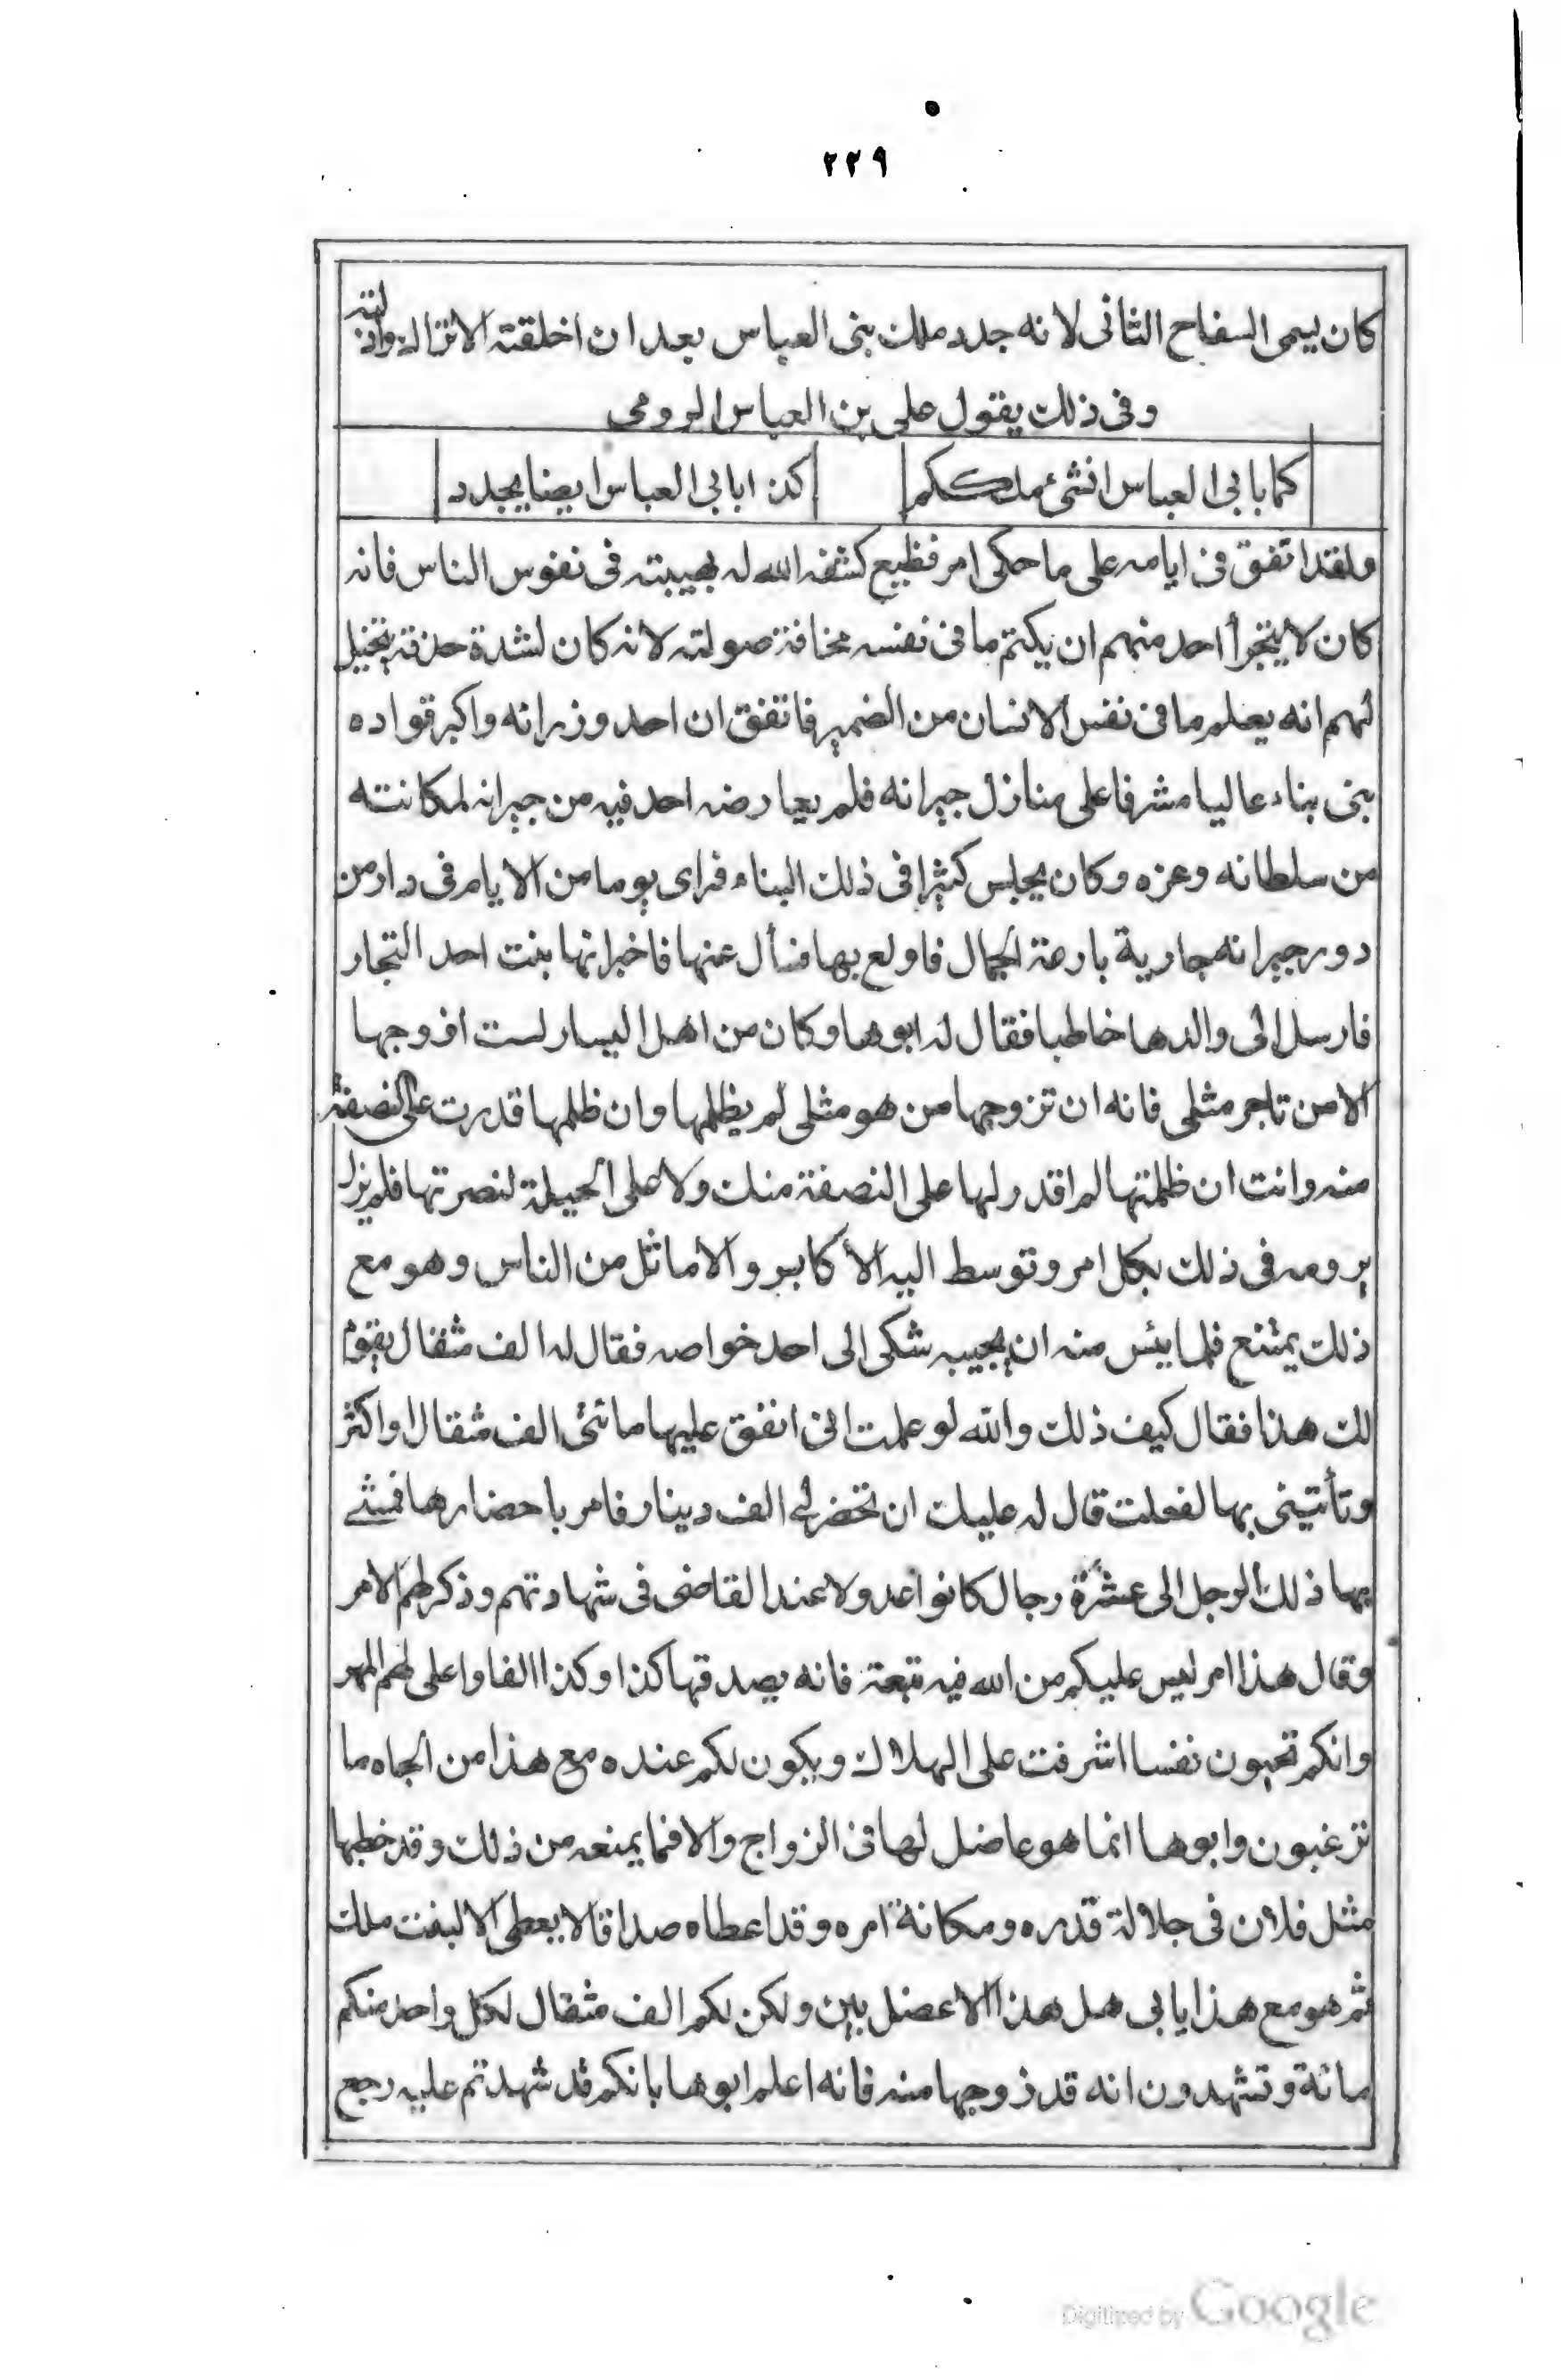 ٢٢٩
كان يسمى السفاح الثانى لانه جدد ملك بنى العباس بعد ان اخلقته الاتراك واذلته
وفى ذلك يقول على بن العباس الرومى
كما بابى العباس انشئ ملككم كذا بابى العباس ايضا يجدد
ولقد اتفق فى ايامه على ما حكى امر فظيع كشفه الله له بهيبته فى نفوس الناس فانه
كان لا يتجرأ احد منهم ان يكتم ما فى نفسه مخافة صولته لانه كان لشدة حذقه يتخيل
لهم انه يعلم ما فى نفس الانسان من الضمير فاتفق ان احد وزرائه واكبر قواده
بنى بناء عاليا مشرفا على منازل جيرانه فلم يعارضه احد فيه من جيرانه لمكانته
من سلطانه وعزه وكان يجلس كثيرا فى ذلك البناء فراى يوما من الايام فى دار من
دور جيرانه جارية بارعة الجمال فاولع بها فسأل عنها فاخبر انها بنت احد التجار
فارسل الى والدها خاطبا فقال له ابوها وكان من اهل اليسار لست ازوجها
الا من تاجر مثلى فانه ان تزوجها من هو مثلى لم يظلمها وان ظلمها قدرت على النصفة
منه وانت ان ظلمتها لم اقدر لها على النصفة منك ولا على الحيلة لنصرتها فلم يزل
يرومه فى ذلك بكل امر وتوسط اليه الاكابر والاماثل من الناس وهو مع
ذلك يمتنع فلما يئس منه ان يجيبه شكى الى احد خواصه فقال له الف مثقال يقوم
لك هذا فقال كيف ذلك والله لو علمت انى انفق عليها مائتى الف مثقال او اكثر
وتأتينى بها لفعلت قال له عليك ان تحضر لى الف دينار فامر باحضارها فمشى
بها ذلك الرجل الى عشرة رجال كانوا عدولا عند القاضى فى شهادتهم وذكر لهم الامر
وقال هذا امر ليس عليكم من الله فيه تبعة فانه يصدقها كذا وكذا الفا واعلى لهم المهر
وانكم تحيون نفسا اشرفت على الهلاك ويكون لكم عنده مع هذا من الجاه ما
ترغبون وابوها انما هو عاضل لها فى الزواج والا فما يمنعه من ذلك وقد خطبها
مثل فلان فى جلالة قدره ومكانة امره وقد اعطاه صداقا لا يعطى الا لبنت ملك
ثم هو مع هذا يابى هل هذا الا عضل بين ولكن لكم الف مثقال لكل واحد منكم
مائة وتشهدون انه قد زوجها منه فانه اعلم ابوها بانكم قد شهدتم عليه رجع
Digitized by Google